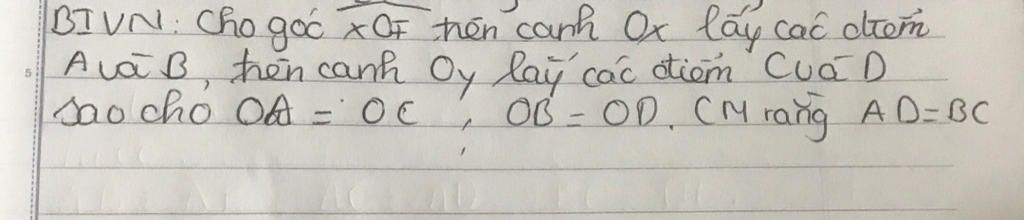 BTVN: Cho góc xOy trên cạnh Ox lấy các điểm
A và B, trên cạnh Oy lấy các điểm C và D
sao cho OA = OC , OB = OD. CM rằng AD = BC